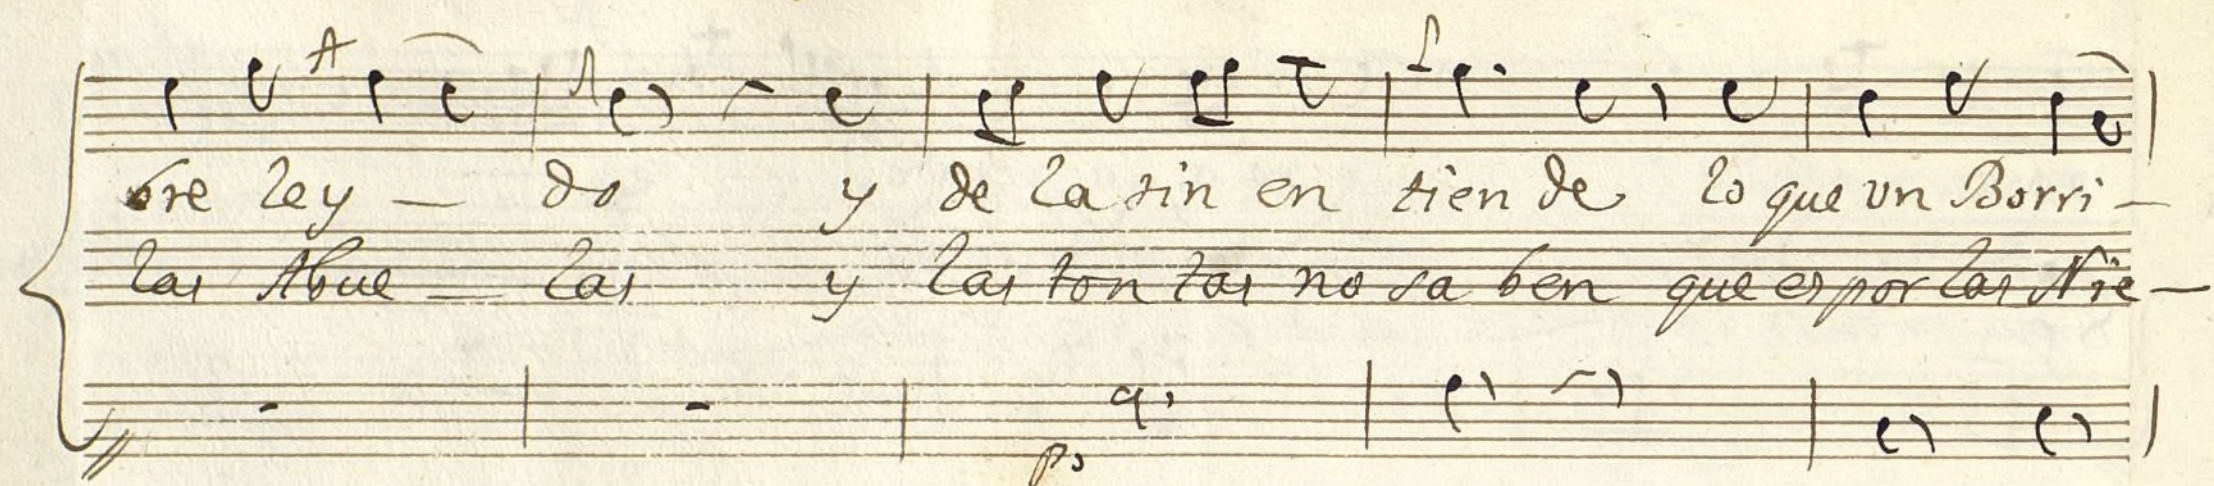 bre ley - do y de la tin en tien de lo que vn Borri -
las Abue - las y las ton tas no sa ben que es por las Nie -
po